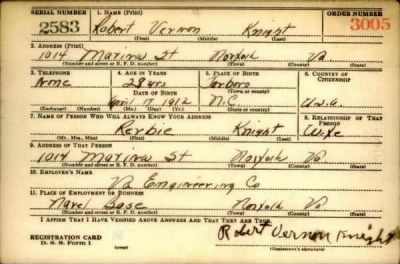 SERIAL NUMBER 1. NAME (Print) ORDER NUMBER
2583 Robert Vernon Knight 3005
(First) (Middle) (Last)
2. ADDRESS (Print)
1014 Marina St Norfolk Va.
(Number and street or R. F. D. number) (Town) (County) (State)
3. TELEPHONE 4. AGE IN YEARS 5. PLACE OF BIRTH 6. COUNTRY OF CITIZENSHIP
None 28 yrs
DATE OF BIRTH (Town or county)
April 17 1912 N.C. U.S.A.
(Exchange) (Number) (Mo.) (Day) (Yr.) (State or country)
7. NAME OF PERSON WHO WILL ALWAYS KNOW YOUR ADDRESS 8. RELATIONSHIP OF THAT PERSON
Knight Wife
(Mr., Mrs., Miss) (First) (Middle) (Last)
9. ADDRESS OF THAT PERSON
1014 Marina St Norfolk Va.
(Number and street or R. F. D. number) (Town) (County) (State)
10. EMPLOYER'S NAME
Va Engineering Co
11. PLACE OF EMPLOYMENT OR BUSINESS
Navel Base Norfolk Va.
(Number and street or R. F. D. number) (Town) (County) (State)
I AFFIRM THAT I HAVE VERIFIED ABOVE ANSWERS AND THAT THEY ARE TRUE.
Robert Vernon Knight
REGISTRATION CARD
D. S. S. Form 1 (over)